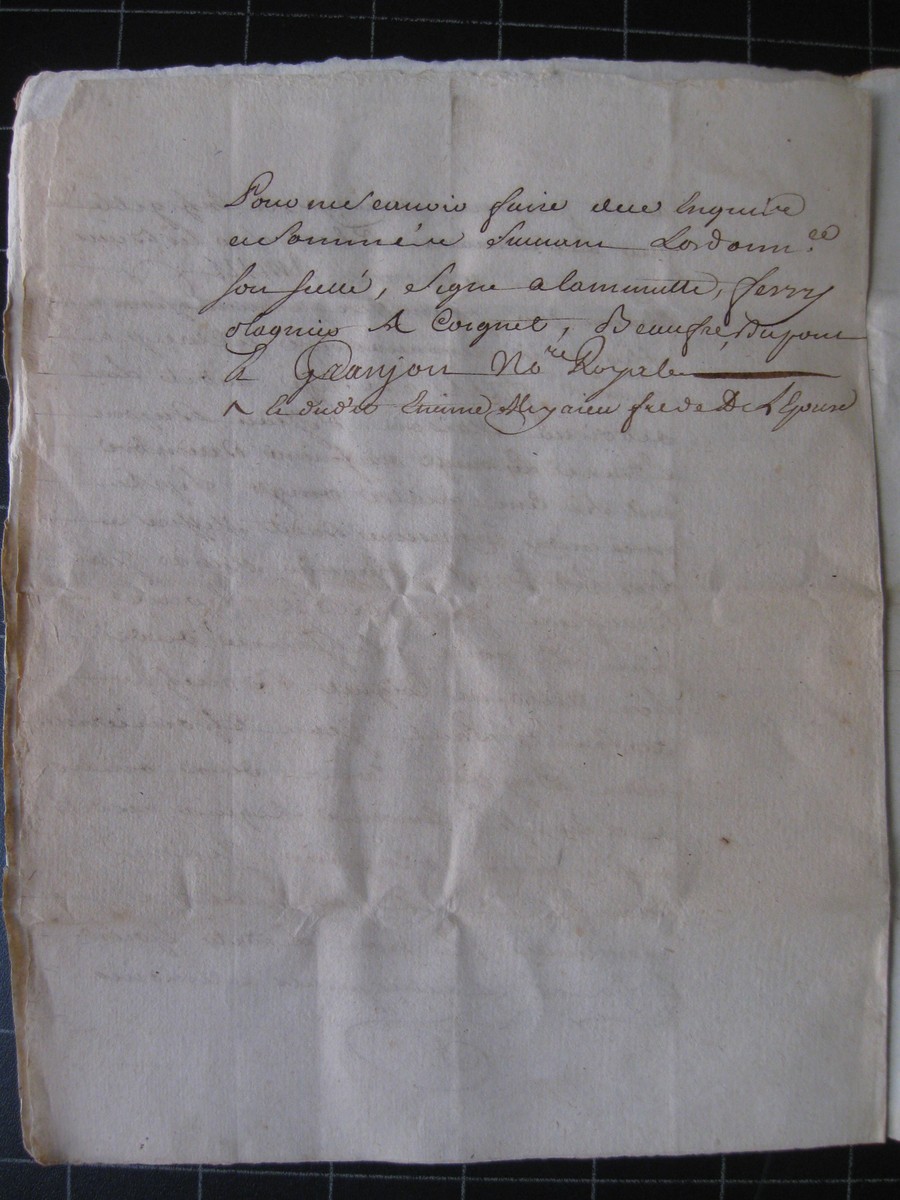 Pour ne savoir faire due Enquise
et Sommairé Suivant Lordonn.ce
son scellé, Signe a la minutte, ferry
olagnier A Coignet, Beaufré, dupont
& Granjon No.re Royal
^ le dudit Meyzieu fre de De l'Epouse